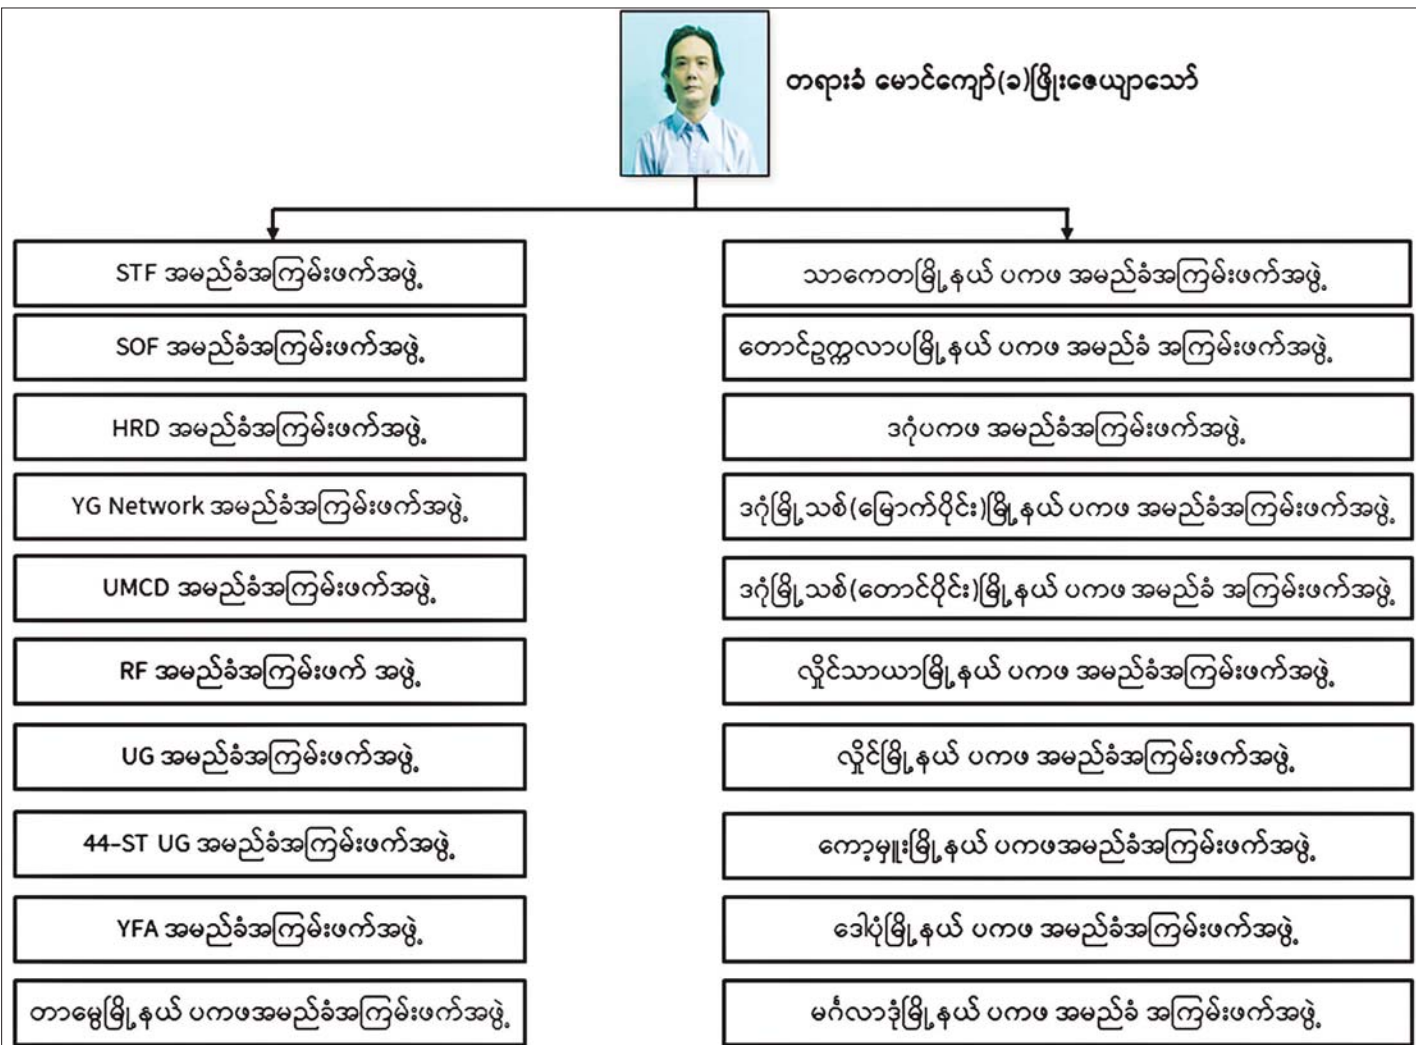 တရားခံ မောင်ကျော်(ခ)ဖြိုးဇေယျာသော်
STF အမည်ခံအကြမ်းဖက်အဖွဲ့
SOF အမည်ခံအကြမ်းဖက်အဖွဲ့
HRD အမည်ခံအကြမ်းဖက်အဖွဲ့
YG Network အမည်ခံအကြမ်းဖက်အဖွဲ့
UMCD အမည်ခံအကြမ်းဖက်အဖွဲ့
RF အမည်ခံအကြမ်းဖက် အဖွဲ့
UG အမည်ခံအကြမ်းဖက်အဖွဲ့
44-ST UG အမည်ခံအကြမ်းဖက်အဖွဲ့
YFA အမည်ခံအကြမ်းဖက်အဖွဲ့
တာမွေမြို့နယ် ပကဖအမည်ခံအကြမ်းဖက်အဖွဲ့
သာကေတမြို့နယ် ပကဖ အမည်ခံအကြမ်းဖက်အဖွဲ့
တောင်ဥက္ကလာပမြို့နယ် ပကဖ အမည်ခံ အကြမ်းဖက်အဖွဲ့
ဒဂုံပကဖ အမည်ခံအကြမ်းဖက်အဖွဲ့
ဒဂုံမြို့သစ်(မြောက်ပိုင်း)မြို့နယ် ပကဖ အမည်ခံအကြမ်းဖက်အဖွဲ့
ဒဂုံမြို့သစ်(တောင်ပိုင်း)မြို့နယ် ပကဖ အမည်ခံ အကြမ်းဖက်အဖွဲ့
လှိုင်သာယာမြို့နယ် ပကဖ အမည်ခံအကြမ်းဖက်အဖွဲ့
လှိုင်မြို့နယ် ပကဖ အမည်ခံအကြမ်းဖက်အဖွဲ့
ကော့မှူးမြို့နယ် ပကဖအမည်ခံအကြမ်းဖက်အဖွဲ့
ဒေါပုံမြို့နယ် ပကဖ အမည်ခံအကြမ်းဖက်အဖွဲ့
မင်္ဂလာဒုံမြို့နယ် ပကဖ အမည်ခံ အကြမ်းဖက်အဖွဲ့